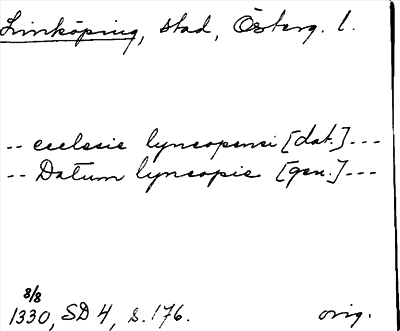 Linköping, stad, Österg. l.
-- ecclesie lyncopensi [dat.] ---
-- Datum lyncopie [gen.] ---
8/8
1330, SD 4, s. 176. orig.